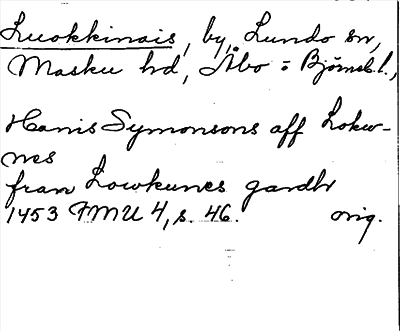 Luokkinais, by, Lundo sn,
Masku hd, Åbo = Björneb. l.,
Hanis Symonsons aff Lokw-
nes
fran Lowkunes gardh
1453 FMU 4, s. 46. orig.